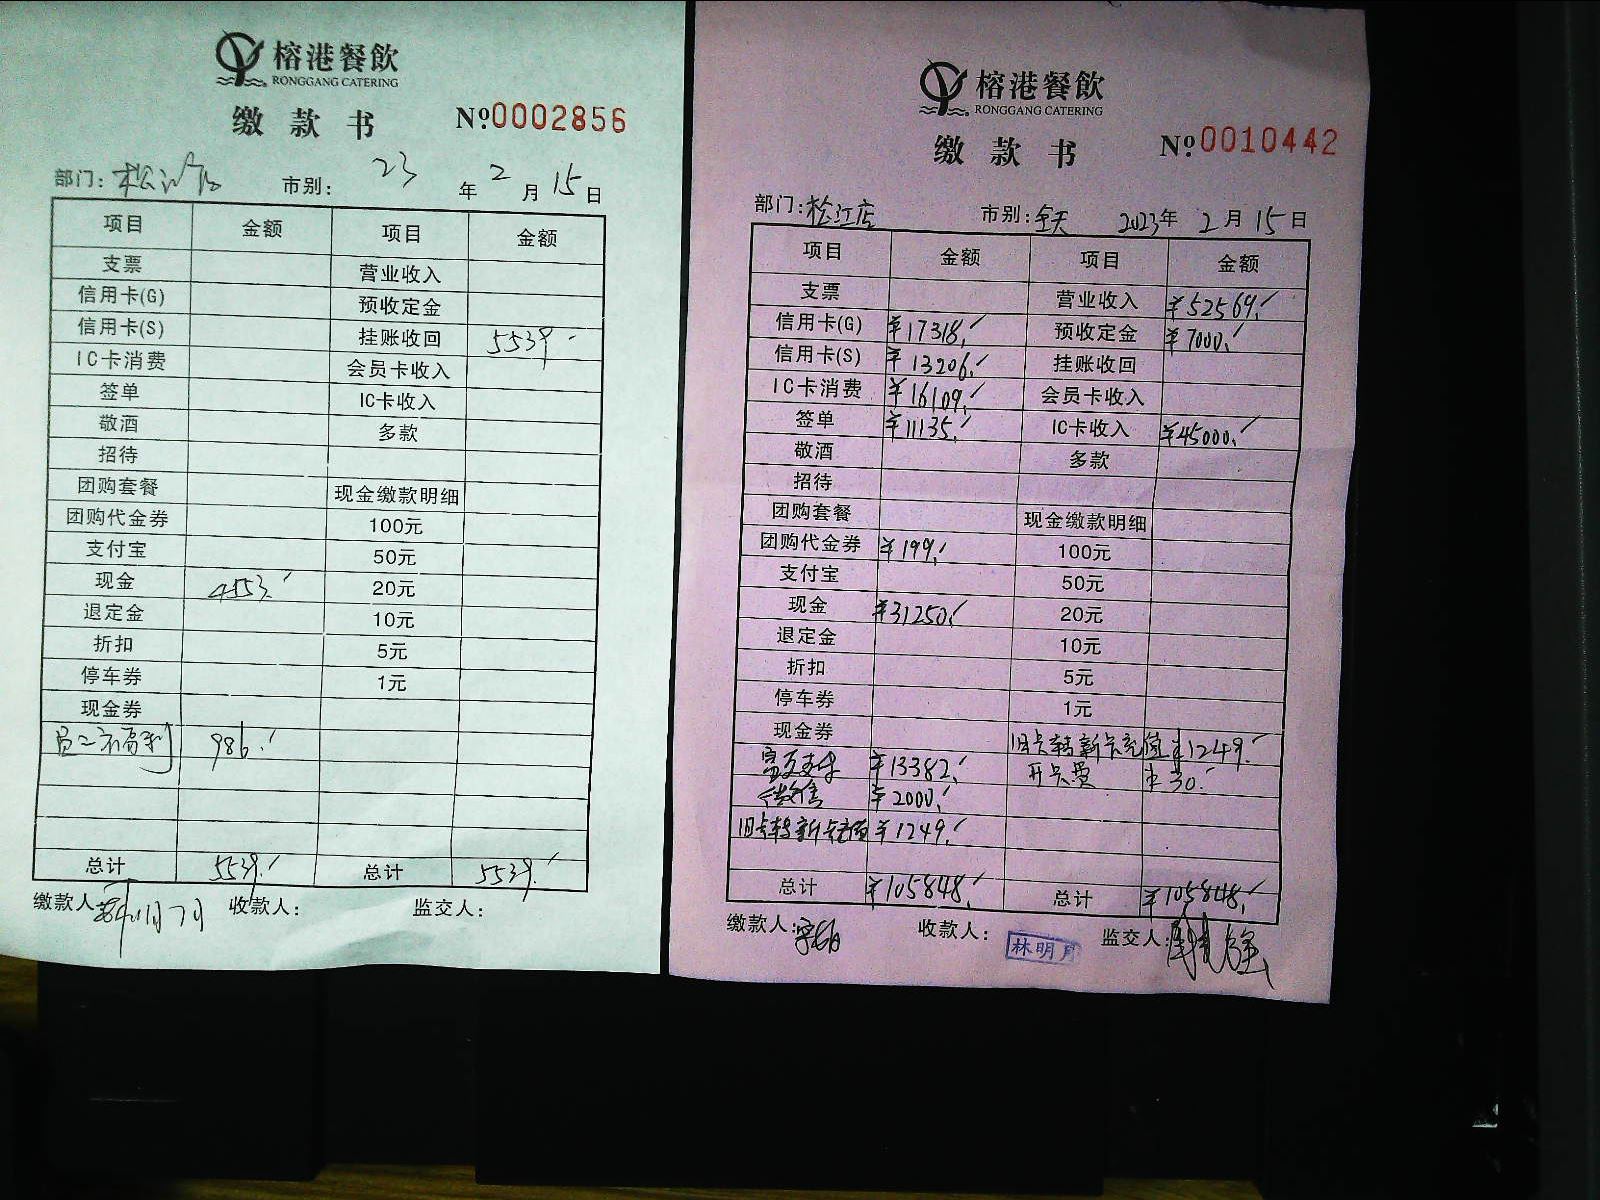 榕港餐飲
RONGGANG CATERING
缴款书 №0002856
部门: 松江店 市别: 23年2月15日
项目 金额 项目 金额
支票 营业收入
信用卡(G) 预收定金
信用卡(S) 挂账收回 5539.
IC卡消费 会员卡收入
签单 IC卡收入
敬酒 多款
招待
团购套餐 现金缴款明细
团购代金券 100元
支付宝 50元
现金 4553. 20元
退定金 10元
折扣 5元
停车券 1元
现金券
986.
总计 5539. 总计 5539.
缴款人: 收款人: 监交人:
榕港餐飲
RONGGANG CATERING
缴款书 №0010442
部门: 松江店 市别: 全天 2023年2月15日
项目 金额 项目 金额
支票 营业收入 ¥52569.
信用卡(G) ¥17318. 预收定金 ¥7000.
信用卡(S) ¥13206. 挂账收回
IC卡消费 ¥16109. 会员卡收入
签单 ¥11135. IC卡收入 ¥45000.
敬酒 多款
招待
团购套餐 现金缴款明细
团购代金券 ¥199. 100元
支付宝 50元
现金 ¥31250. 20元
退定金 10元
折扣 5元
停车券 1元
现金券 旧卡转新卡充值 ¥1249.
支付 ¥13382. 开卡费 ¥30.
微信 ¥2000.
旧卡转新卡充值 ¥1249.
总计 ¥105848. 总计 ¥105848.
缴款人: 收款人: 林明月 监交人: